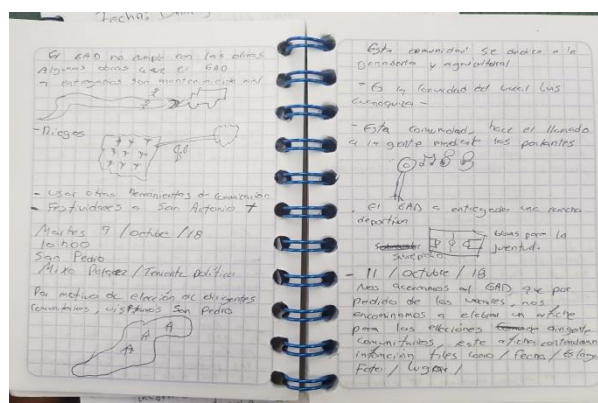 Fecha:
El GAD no cumple con las obras
Algunas obras que el GAD
entregaron son mantenimiento vial
- Riegos
- Usar otras herramientas de comunicación
- Festividades a San Antonio
Martes 9 / octubre / 18
10h00
San Pedro
/ Teniente político
Por motivo de elección de dirigentes
comunitarios, visitamos San Pedro
Esta comunidad se dedica a la
ganadería y agricultural
- Es la comunidad del
- Esta comunidad, hace el llamado
a la gente mediante los parlantes
- El GAD a entregado una cancha
deportiva
para la
juventud.
- 11 / octubre / 18
Nos acercamos al GAD que por
pedido de los, nos
encaminamos a elaborar un afiche
para las elecciones dirigente
comunitarios, este afiche
como / Fecha /
Foto / Lugar /